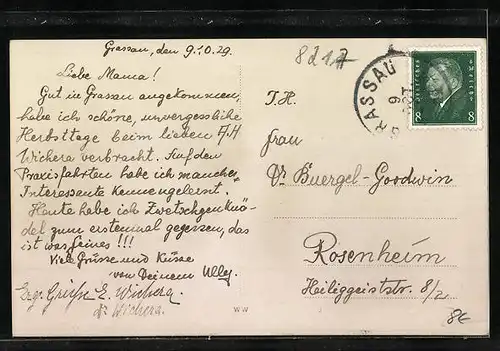 Grassau, den 9.10.29.
Liebe Mama!
Gut in Grassau angekommen,
habe ich schöne, unvergessliche
Herbsttage beim lieben A/H
Wichera verbracht. Auf den
Praxisfahrten habe ich manches
Interessante kennengelernt.
Heute habe ich Zwetschgenknö-
del zum erstenmal gegessen, das
ist was feines!!!
Viele Grüsse und Küsse
von Deinem Ulley.
Erg. Grüße E. Wichera
Dr Wichera.
8217
GRASSAU
9
OKT
Deutsches Reich
8 8
I.H.
Frau
Dr Buergel-Goodwin
Rosenheim
Heiliggeiststr. 8/2
WW
8€